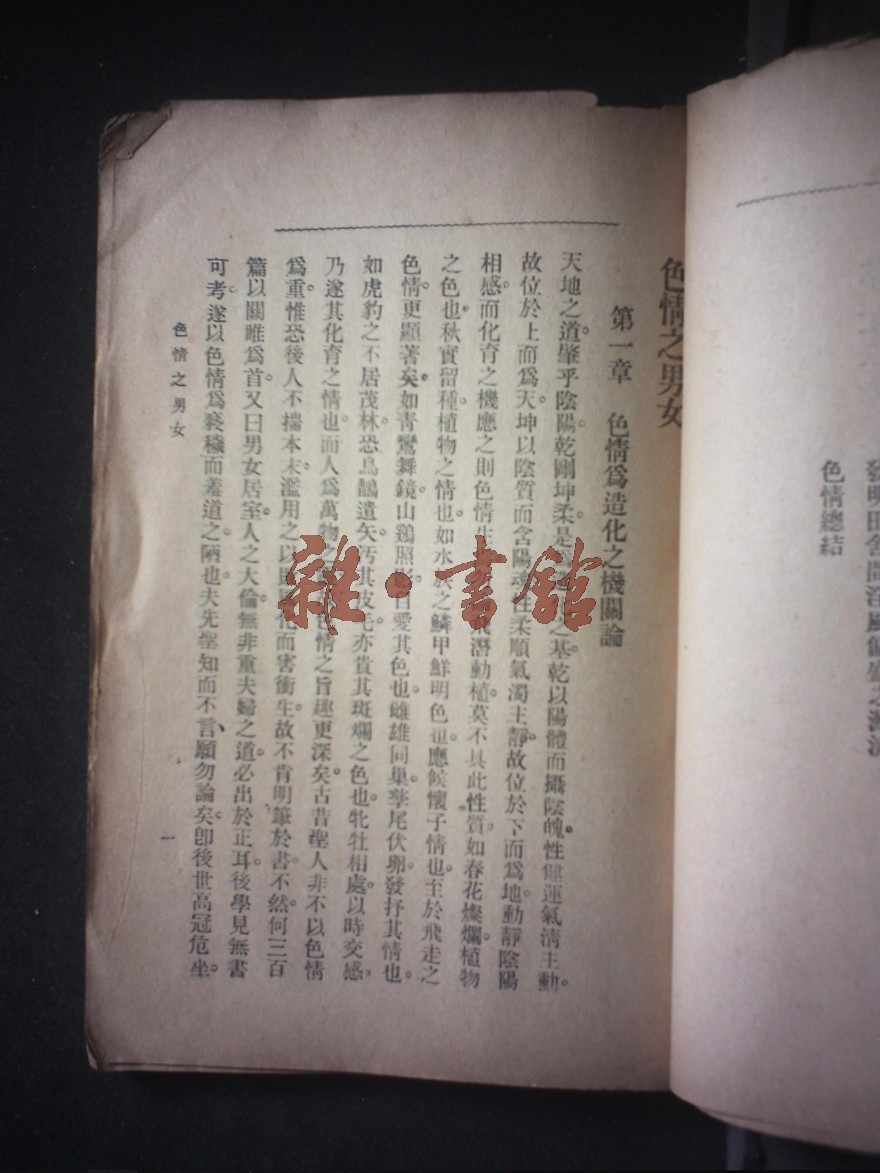 發明田舍間淫風
色情總結
色情之男女
第一章　色情爲造化之機關論
天地之道。肇乎陰陽。乾剛坤柔。是之基。乾以陽體而攝陰魄。性健運氣淸主動。
故位於上而爲天。坤以陰質而含陽魂。性柔順氣濁主靜。故位於下而爲地。動靜陰陽
相感。而化育之機應之。則色情生潛動植。莫不具此性質。如春花燦爛。植物
之色也。秋實留種。植物之情也。如水族之鱗甲鮮明。色也。應候懷子。情也。至於飛走之
色情。更顯著矣。如靑鸞舞鏡。山鷄照影。自愛其色也。雌雄同巢。孳尾伏卵。發抒其情也。
如虎豹之不居茂林。恐鳥鵲遺矢。汚其皮毛。亦貴其斑斕之色也。牝牡相處。以時交感。
乃遂其化育之情也。而人爲萬物之色情之旨趣更深矣。古昔聖人非不以色情
爲重。惟恐後人不揣本末。濫用之以化而害衛生。故不肯明筆於書。不然何三百
篇以關雎爲首。又曰男女居室。人之大倫。無非重夫婦之道。必出於正耳。後學見無書
可考。遂以色情爲褻穢而羞道之。陋也。夫先聖知而不言、願勿論矣。卽後世高冠危坐。
色情之男女
一
雜·書館